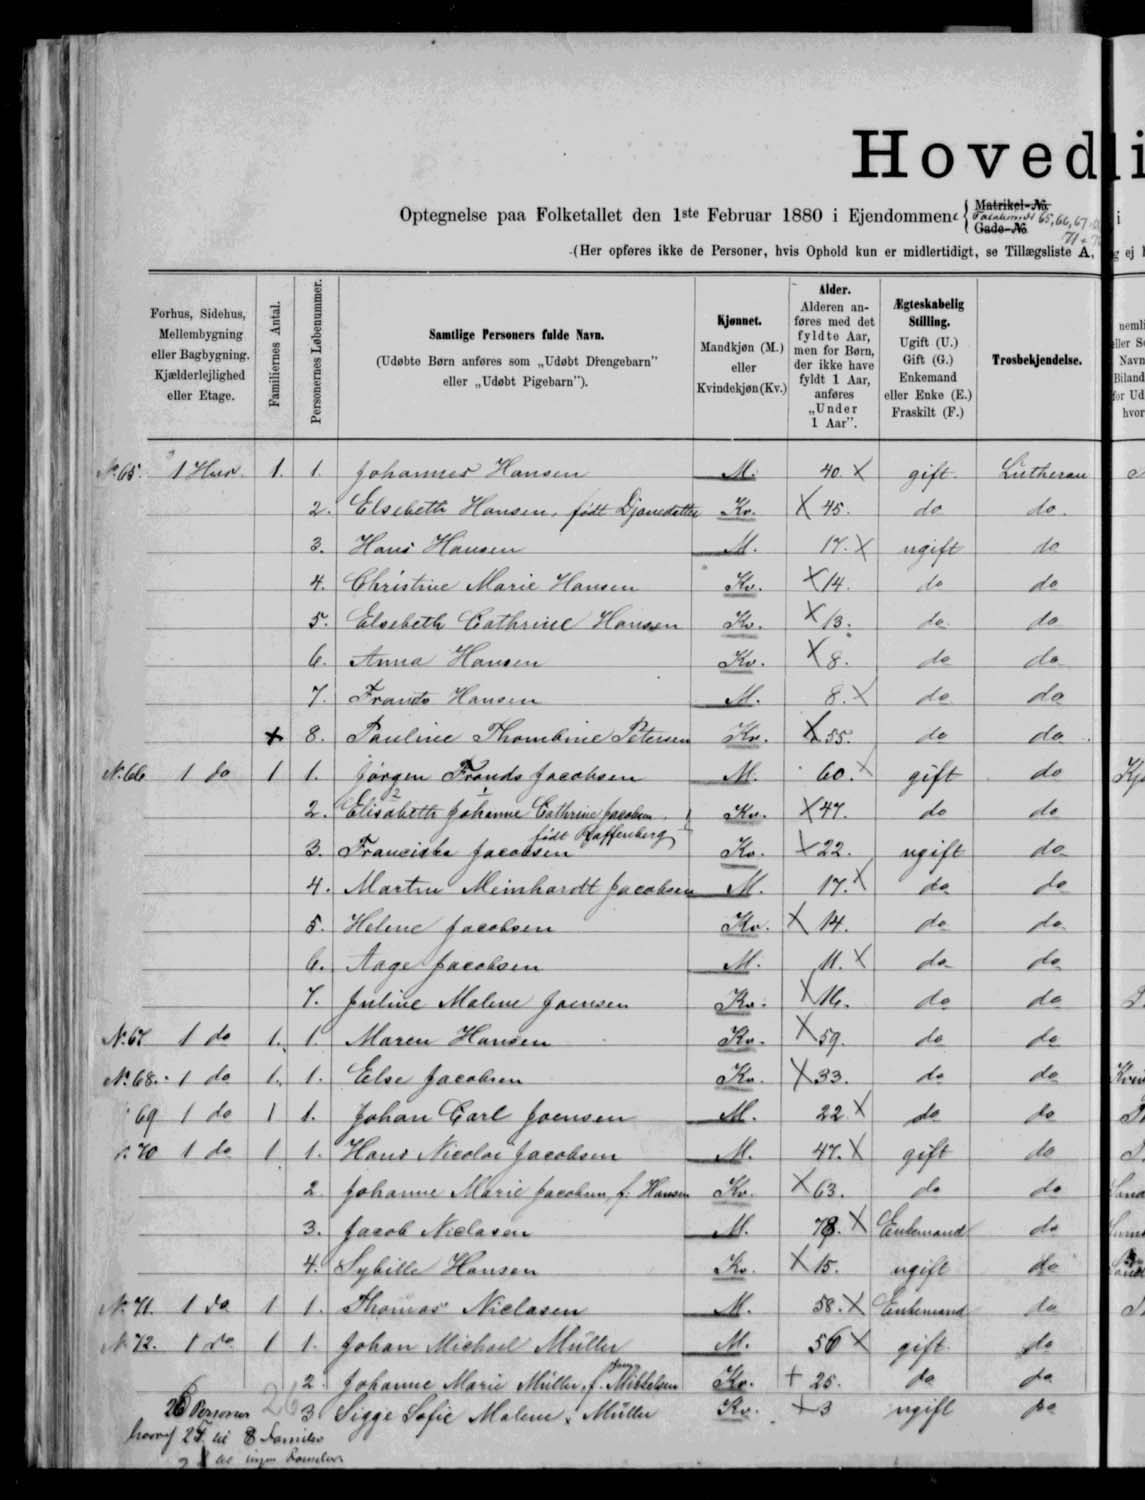 Hovedli
Optegnelse paa Folketallet den 1ste Februar 1880 i Ejendommene { Matrikel-No. 65, 66, 67 i
Gade-No. 71 + 72
(Her opføres ikke de Personer, hvis Ophold kun er midlertidigt, se Tillægsliste A,
Forhus, Sidehus, Mellembygning eller Bagbygning. Kjælderlejlighed eller Etage.
Familiernes Antal.
Personernes Løbenummer.
Samtlige Personers fulde Navn.
(Udøbte Børn anføres som „Udøbt Drengebarn" eller „Udøbt Pigebarn").
Kjønnet.
Mandkjøn (M.) eller Kvindekjøn (Kv.)
Alder.
Alderen anføres med det fyldte Aar, men for Børn, der ikke have fyldt 1 Aar, anføres „Under 1 Aar".
Ægteskabelig Stilling.
Ugift (U.) Gift (G.) Enkemand eller Enke (E.) Fraskilt (F.)
Trosbekjendelse.
No. 65. 1 Huus. 1. 1. Johannes Hansen M. 40. X gift. Lutheran
2. Elsebeth Hansen, født Djonedatter Kv. X 45. do do.
3. Hans Hansen M. 17. X ugift do
4. Christine Marie Hansen Kv. X 14. do do
5. Elsebeth Cathrine Hansen Kv. X 13. do do
6. Anna Hansen Kv. X 8. do do
7. Frants Hansen M. 8. X do do
+ 8. Pauline Thombine Petersen Kv. X 55. do do
No. 66 1 do 1 1. Jørgen Frands Jacobsen M. 60. X gift do
2. Elisabeth Johanne Cathrine Jacobsen Kv. X 47. do do
født Raffenberg
3. Franciska Jacobsen Kv. X 22. ugift do
4. Martin Meinhardt Jacobsen M. 17. X do do
5. Helene Jacobsen Kv. X 14. do do
6. Aage Jacobsen M. 11. X do do
7. Juline Malene Joensen Kv. X 16. do do
No. 67 1 do 1. 1. Maren Hansen Kv. X 59. do do
No. 68. 1 do 1. 1. Else Jacobsen Kv. X 33. do do
69 1 do 1 1. Johan Carl Joensen M. 22 X do do
70 1 do 1 1. Hans Nicolai Jacobsen M. 47. X gift do
2. Johanne Marie Jacobsen, f. Hansen Kv. X 63. do do
3. Jacob Niclasen M. 78. X Enkemand do
4. Sybille Hansen Kv. X 15. ugift do
No. 71. 1 do 1 1. Thomas Niclasen M. 58. X Enkemand do
No. 72. 1 do 1 1. Johan Michael Müller M. 56 X gift do
2. Johanne Marie Müller, f. Mikkelsen Kv. + 25. do do
26 Personer 26 3 Sigge Sofie Malene Müller Kv. X 3 ugift do
hvoraf 25 til 8 Familier
til ingen Familier